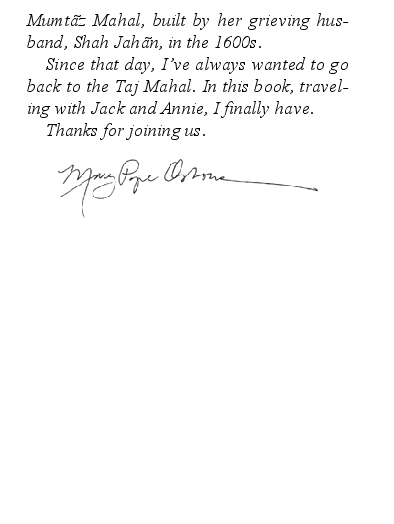 Mumtāz Mahal, built by her grieving hus-
band, Shah Jahān, in the 1600s.
Since that day, I've always wanted to go
back to the Taj Mahal. In this book, travel-
ing with Jack and Annie, I finally have.
Thanks for joining us.
Mary Pope Osborne